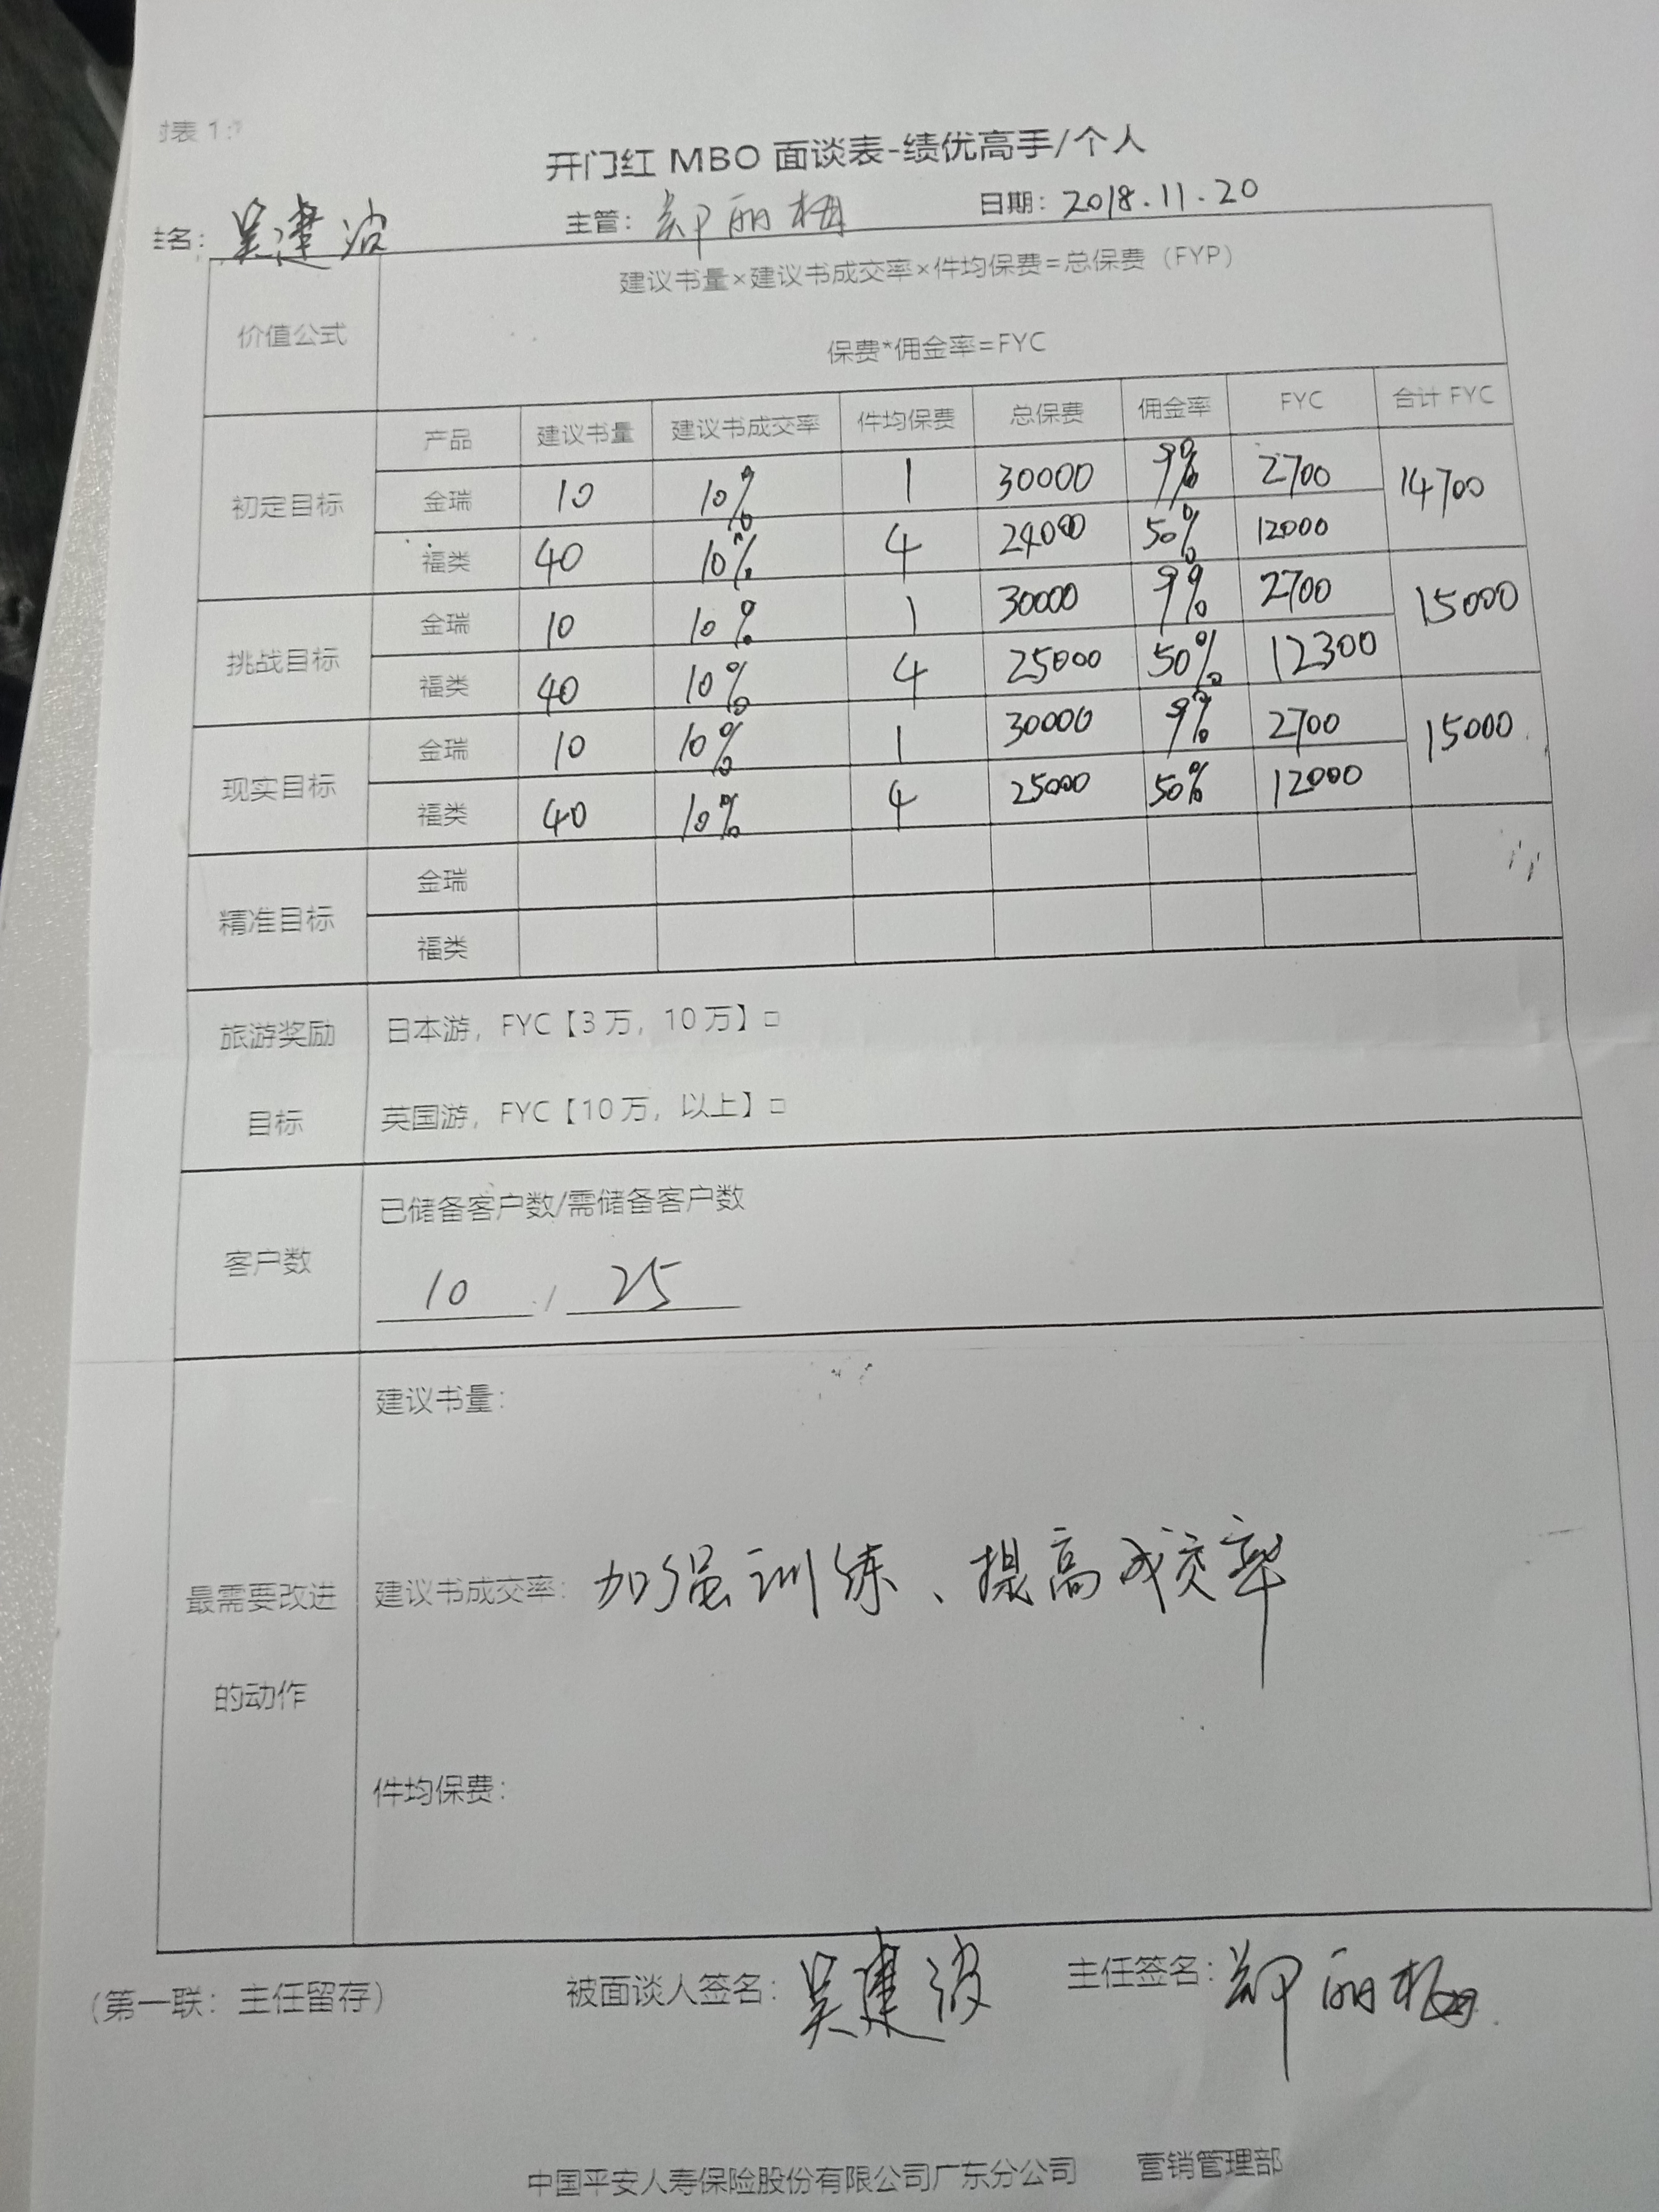 附表 1:
开门红 MBO 面谈表-绩优高手/个人
姓名: 吴建波 主管: 郑丽梅 日期: 2018.11.20
价值公式
建议书量×建议书成交率×件均保费=总保费（FYP）
保费*佣金率=FYC
产品 建议书量 建议书成交率 件均保费 总保费 佣金率 FYC 合计 FYC
初定目标
金瑞 10 10% 1 30000 9% 2700 14700
福类 40 10% 4 24000 50% 12000
挑战目标
金瑞 10 10% 1 30000 9% 2700 15000
福类 40 10% 4 25000 50% 12300
现实目标
金瑞 10 10% 1 30000 9% 2700 15000
福类 40 10% 4 25000 50% 12000
精准目标
金瑞
福类
旅游奖励
目标
日本游，FYC【3 万，10 万】□
英国游，FYC【10 万，以上】□
客户数
已储备客户数/需储备客户数
10 / 25
最需要改进
的动作
建议书量：
建议书成交率: 加强训练、提高成交率
件均保费：
（第一联：主任留存） 被面谈人签名: 吴建波 主任签名: 郑丽梅
中国平安人寿保险股份有限公司广东分公司 营销管理部